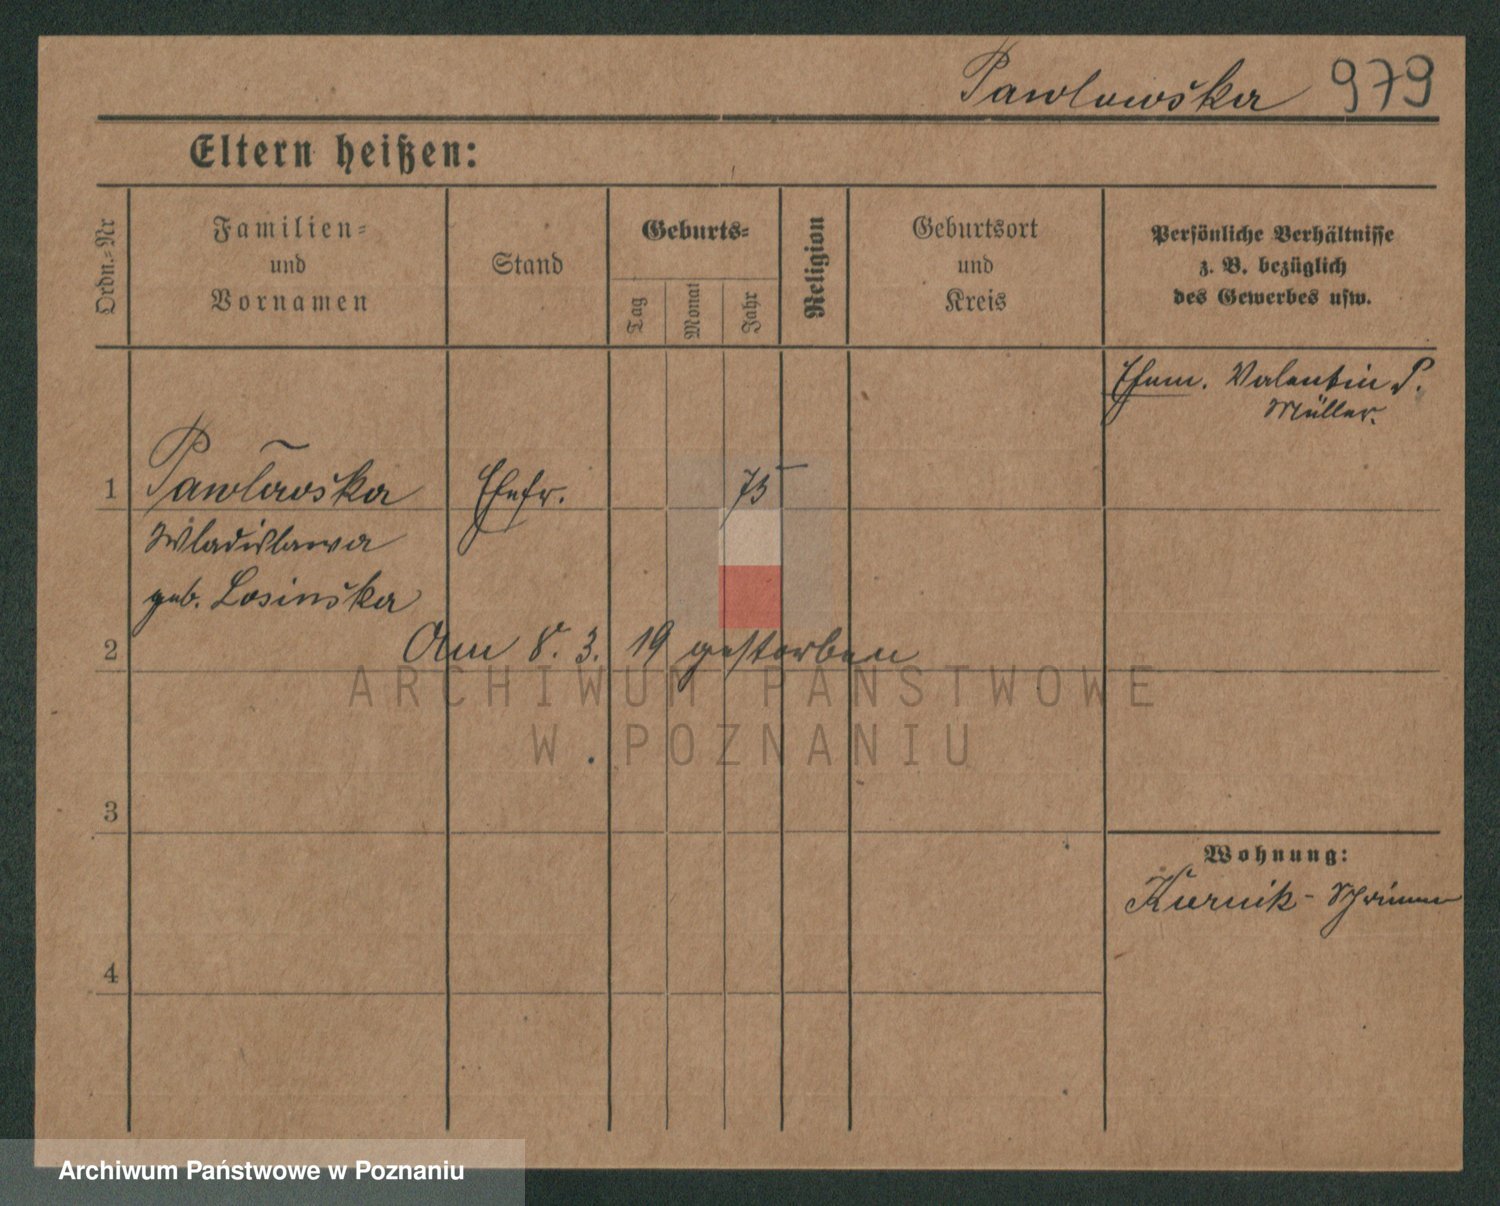 Pawlowska 979
Eltern heißen:
Ordn.-Nr
Familien-
und
Vornamen
Stand
Geburts-
Tag
Monat
Jahr
Religion
Geburtsort
und
Kreis
Persönliche Verhältnisse
z. B. bezüglich
des Gewerbes usw.
Ehem. Valentin P.
Müller.
1 Pawlowska Ehefr. 75
Wladislawa
geb. Losinska
2 Am 8. 3. 19 gestorben
ARCHIWUM PAŃSTWOWE
W POZNANIU
3
Wohnung:
Kurnik - Schrimm
4
Archiwum Państwowe w Poznaniu